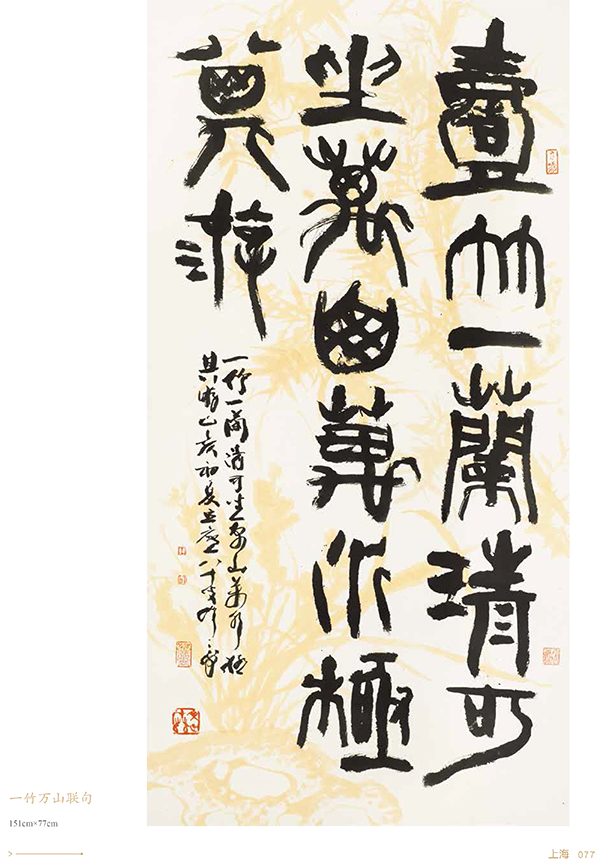 壹竹一蘭清可
坐萬山萬水極
其游
一竹一蘭清可坐万山萬水極
其游 亥初夏 八十
一竹万山联句
151cm×77cm
上海 077